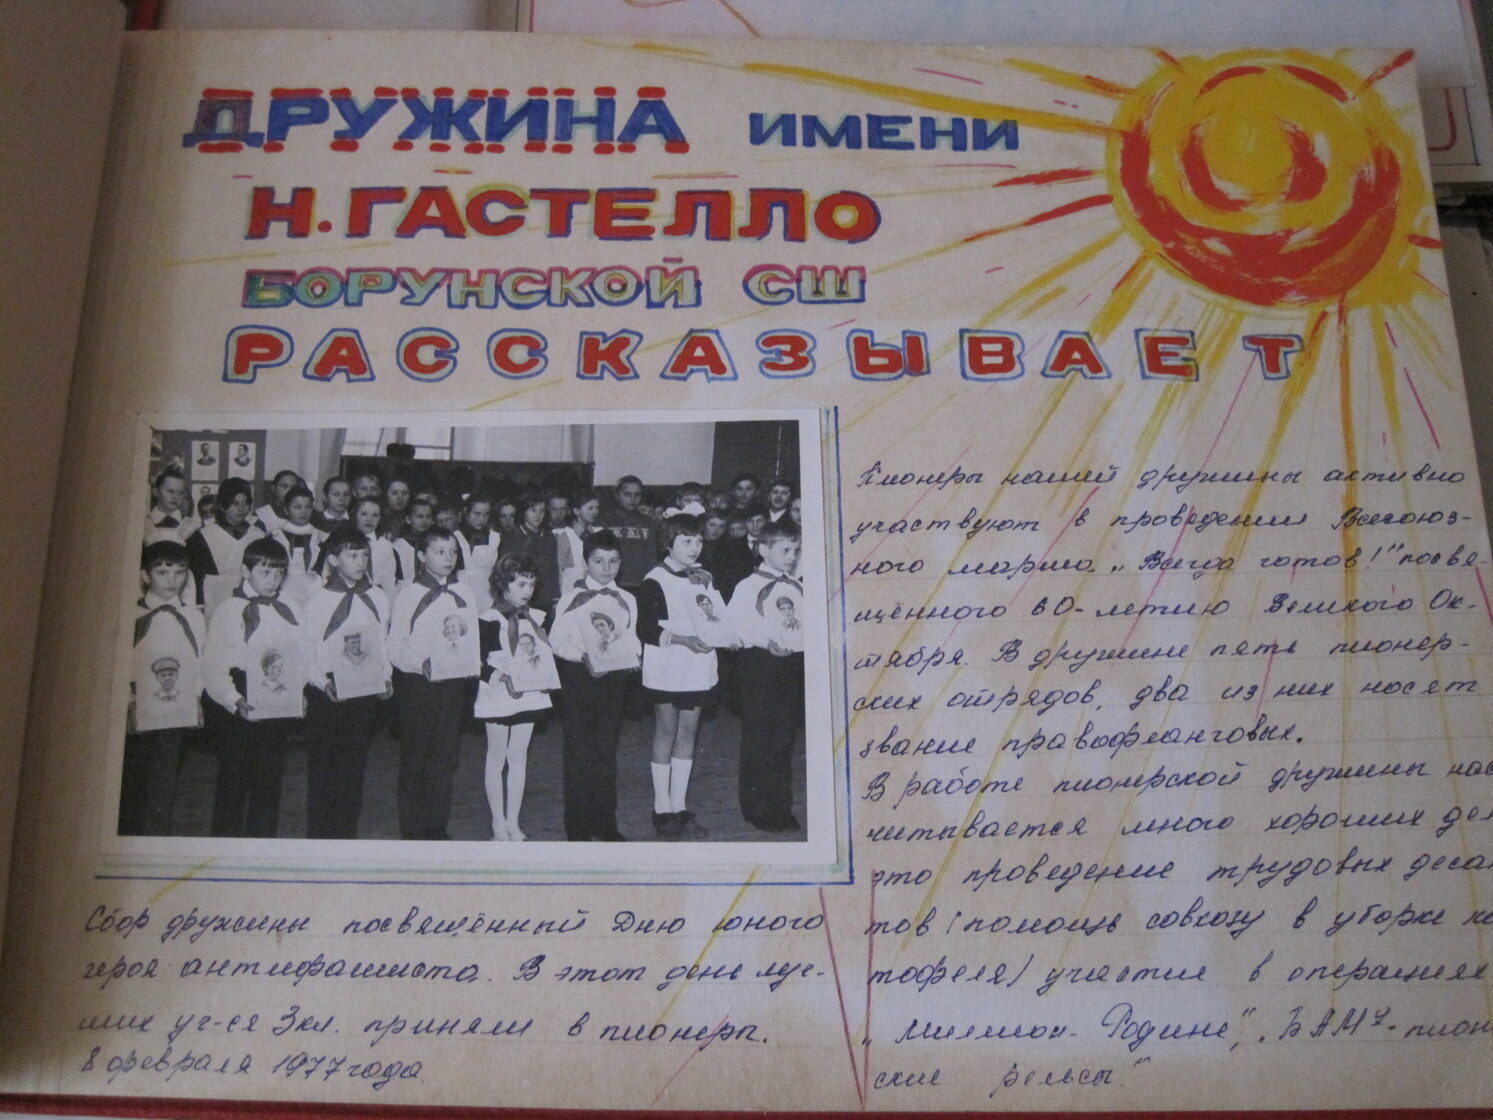 ДРУЖИНА ИМЕНИ
Н.ГАСТЕЛЛО
БОРУНСКОЙ СШ
РАССКАЗЫВАЕТ
Пионеры нашей дружины активно
участвуют в проведении Всесоюз-
ного марша „Всегда готов!" посвя-
щённого 60-летию Великого Ок-
тября. В дружине пять пионер-
ских отрядов, два из них носят
звание правофланговых.
В работе пионерской дружины нас
читывается много хороших дел
это проведение трудовых десан
тов (помощь совхозу в уборке ка
тофеля) участие в операциях
„Миллион- Родине", „БАМу- пион
ские рельсы"
Сбор дружины посвящённый Дню юного
героя антифашиста. В этот день луч-
ших уч-ся 3кл. приняли в пионеры.
8 февраля 1977 года.